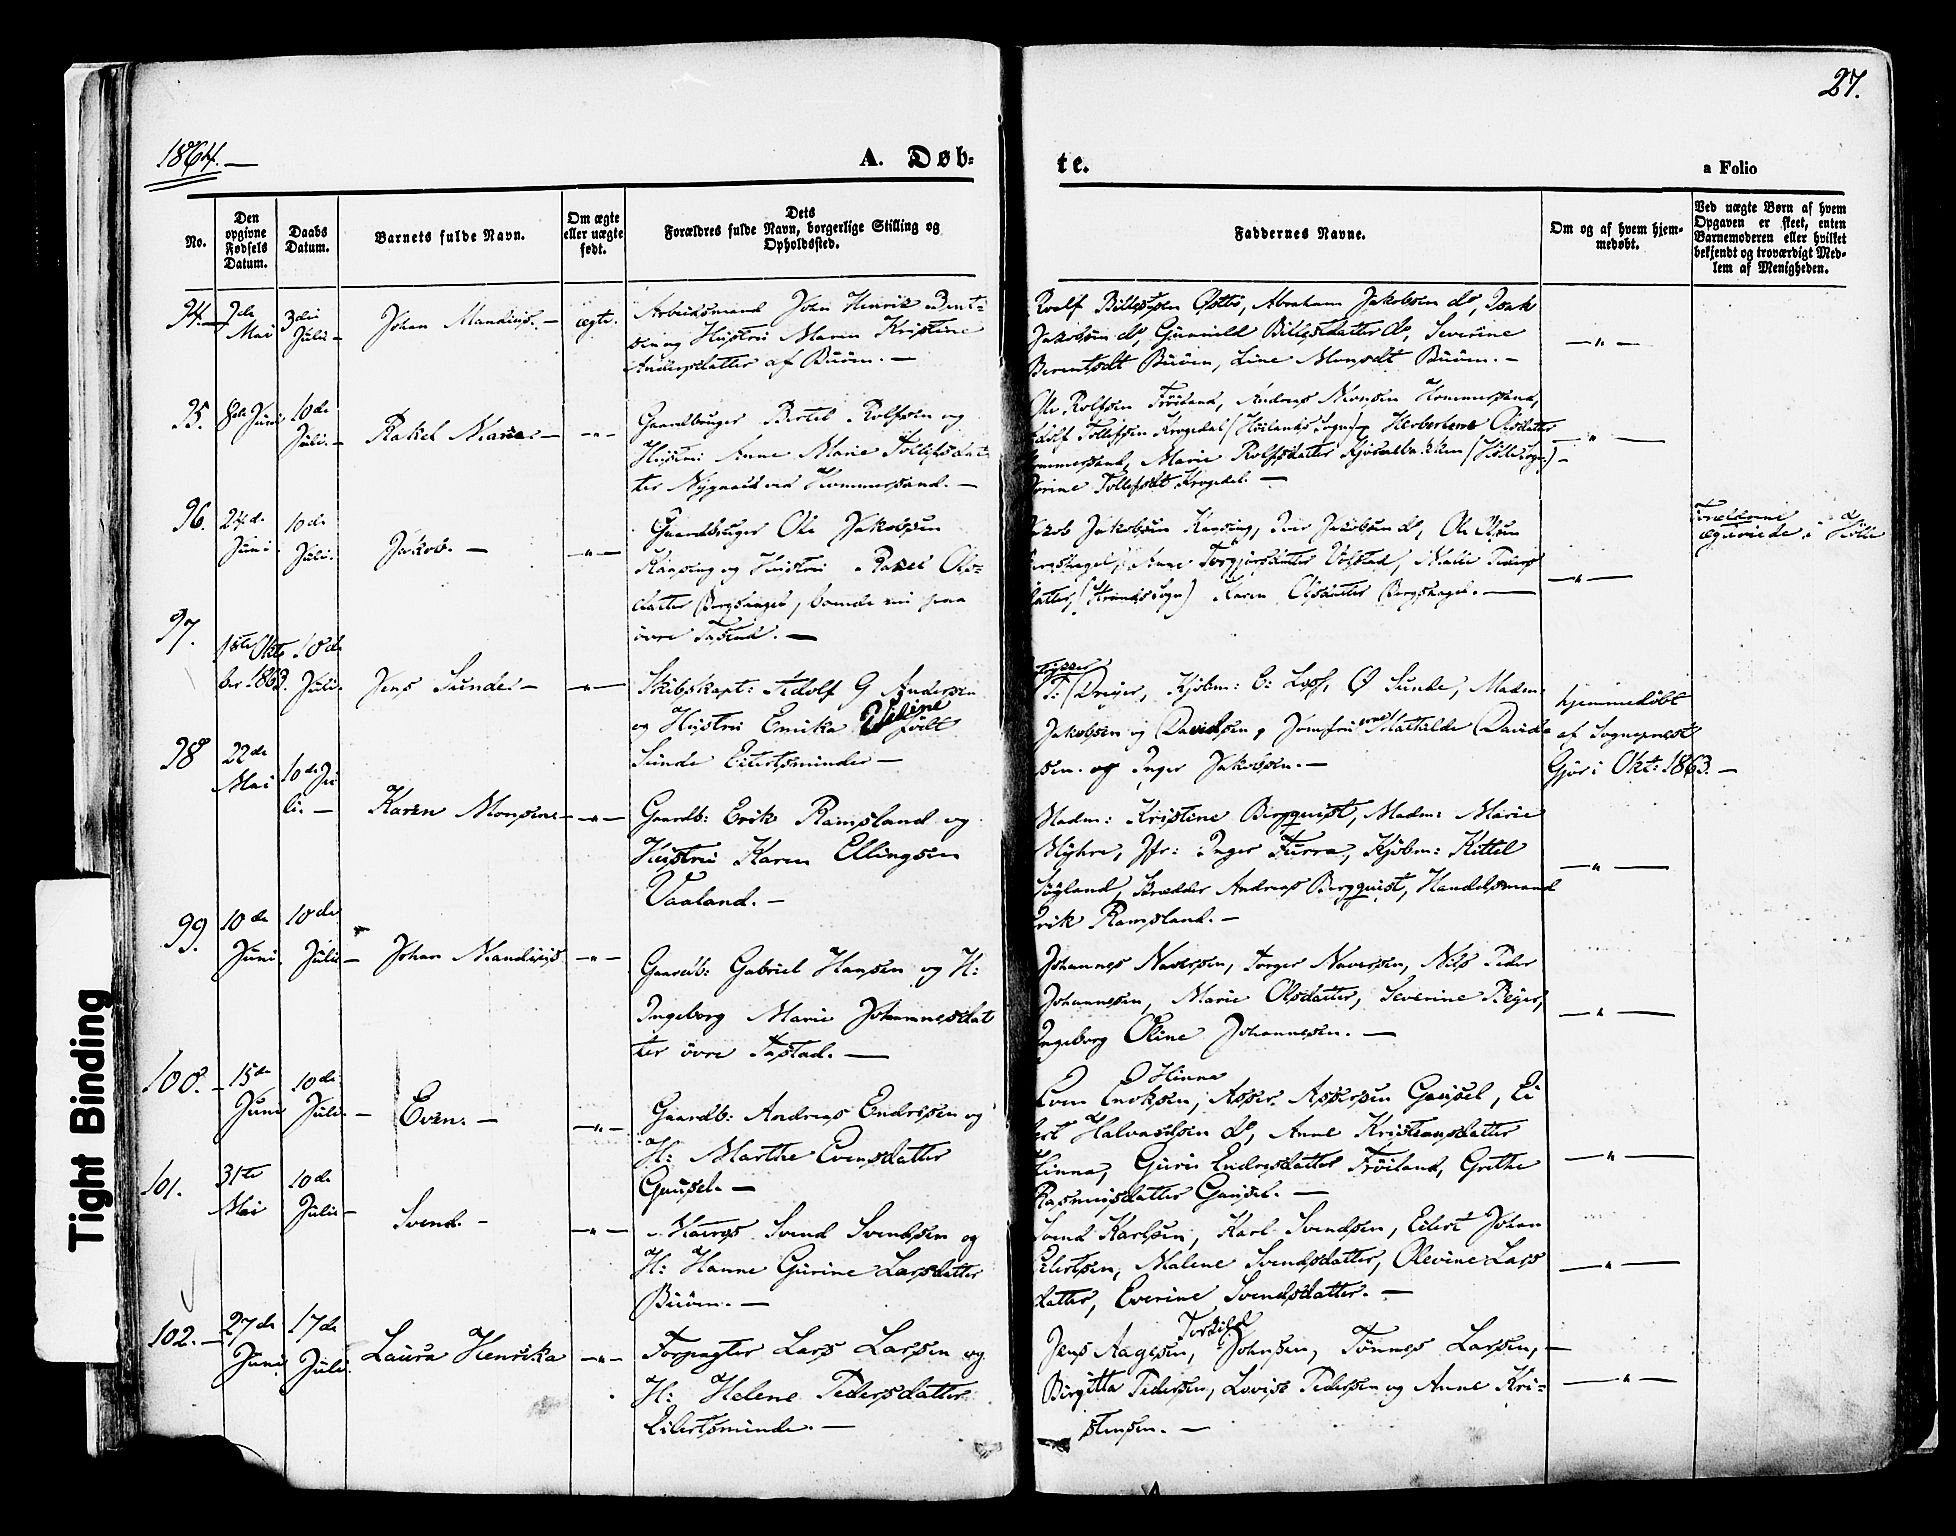 27.
1864.—
A. Døb-
te.
a Folio
No.
Den opgivne Fødsels Datum.
Daabs Datum.
Barnets fulde Navn.
Om ægte eller uægte født.
Dets
Forældres fulde Navn, borgerlige Stilling og
Opholdssted.
Faddernes Navne.
Om og af hvem hjem-
medøbt.
Ved uægte Børn af hvem
Opgaven er skeet, enten
Barnemoderen eller hvilket
bekjendt og troværdigt Med-
lem af Menigheden.
94.
Mai
3die
Juli
Johan Mandius.
ægte.
Arbeidsmand John Henrik Bent-
sen og Hustru Maren Kristine
Andersdatter af Buöen.—
Rolf Jakobsen do, Isak
Jakobsen do, Severine
Berentsdt Buöen, Line Monsdt Buöen.—
95.
8de Juni
10de
Juli.—
Rakel Marie.—
Gaardbruger Bertel Rolfsen og
Hustru Anne Marie Tollefsdat-
ter Nygaard ved Hommersand.—
Ole Rolfsen Fröiland, Andreas Monsen Hommersand,
Adolf Tollefsen Krogedal (Höilands Sogn) og Olsdatter
Hommersand, Marie Rolfsdatter
Tollefsdt Krogedal.—
96.
24de
Juni
10de
Juli.
Jakob.—
Gaardbruger Ole Jakobsen
og Hustru Rakel Ols-
datter Bergshagel, boende nu paa
övre Tasted.—
Jakob Jakobsen Jakobsen do, Ole Olsen
Bergshagel, Anne
datter, (Strands Sogn) Karen Olsdatter Bergshagel.—
Forældrene
i Hölle
97.
1ste Okto
ber 1863.
10de
Juli.
Jens Sunde.—
Skibskapt: Adolf G Andersen
og Hustru Emika Vilene född
Sunde Eilertsminde—
Dreyer, Kjöbm: Ø Sunde, Madm:
Jakobsen og Davidsen, Jomfru erne Mathilde David-
sen og Inger Jakobsen.—
hjemmedöbt
af Sognepræst
Gjör i Okt: 1863.—
98
22de
Mai
10de Ju
li.—
Karen Monsine
Gaardb: Erik Ramsland og
Hustru Karen Ellingsen
Vaaland.—
Madm: Kristine Bergquist, Madm: Marie
Myhre, Jfr: Inger Furra, Kjöbm: Kittel
Söyland, Skrædder Andreas Bergquist, Handelsmand
Erik Ramsland.—
99.
10de
Juni
10de
Juli—
Johan Mandius
Gaardb: Gabriel Hansen og H:
Ingeborg Marie Johannesdat
ter övre Tastad.—
Johannes Naversen, Torger Naversen, Nils Peder
Johannesen, Marie Olsdatter, Severine Beyer,
Ingeborg Oline Johannesen.—
100.
15de
Juni
10de
Juli.—
Even.—
Gaardb: Andreas Endresen og
H: Marthe Evensdatter
Gausel.—
Hinna
Even Enoksen, Asper Aspersen Gausel, Ei
lert Halvardsen do, Anne Kristiansdatter
Hinna, Guri Endresdatter Fröiland, Grethe
Rasmusdatter Gausel.—
101.
31te
Mai
10de
Juli—
Svend.—
Svend Svendsen og
H: Hanne Gurine Larsdatter
Buöen.—
Svend Karlsen, Karl Svendsen, Eilert Johan
Eilertsen, Malene Svendsdatter, Olevine Lars
datter, Everine Svendsdatter.—
102.—
27de
Juni
17de
Juli
Laura Henrika
Forpagter Lars Larsen og
H: Helene Pedersdatter
Eilertsminde.—
Torkild
Jens Aagesen, Johnsen, Tönnes Larsen,—
Birgitta Pedersen, Lovise Pedersen og Anne Kri-
stensen.—
Tight Binding